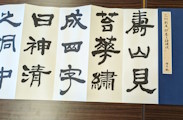 壽山見
苔華繡
成四字
曰神清
之洞中